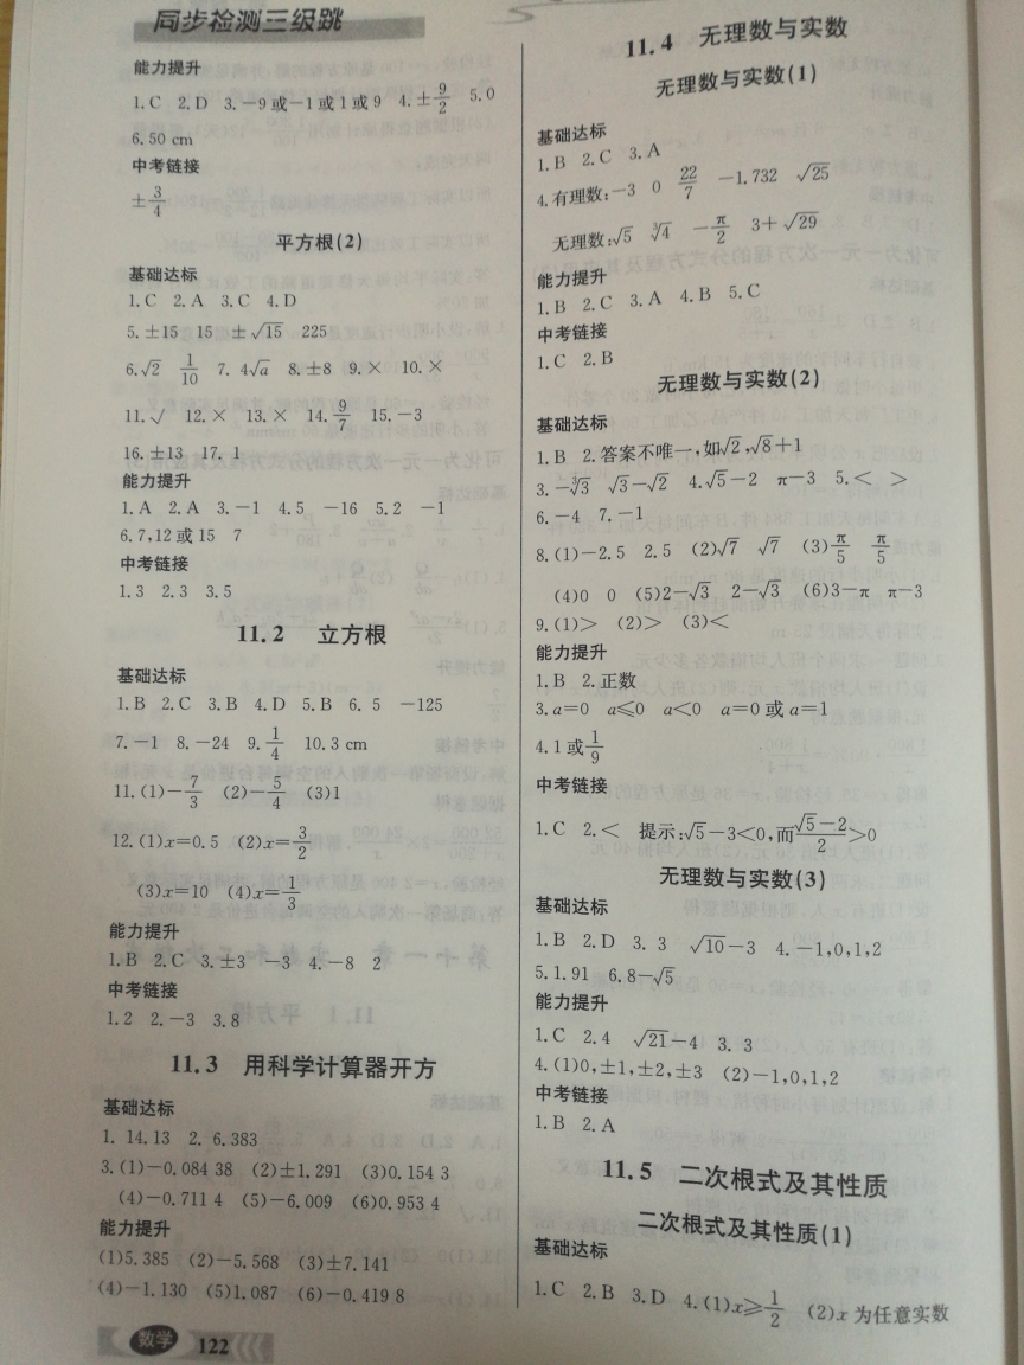 同步检测三级跳
能力提升
1.C 2.D 3.－9或－1或1或9 4.±9/2 5.0
6.50 cm
中考链接
±3/4
平方根(2)
基础达标
1.C 2.A 3.C 4.D
5.±15 15 ±√15 225
6.√2 1/10 7. 4√a 8.±8 9.× 10.×
11.√ 12.× 13.× 14.9/7 15.－3
16.±13 17. 1
能力提升
1.A 2.A 3.－1 4.5 －16 5.2 －1
6.7,12或15 7
中考链接
1.3 2.3 3.5
11.2 立方根
基础达标
1.B 2.C 3.B 4.D 5.B 6. 5 －125
7.－1 8.－24 9.1/4 10.3 cm
11.(1)－7/3 (2)－5/4 (3)1
12.(1)x=0.5 (2)x=3/2
(3)x=10 (4)x=1/3
能力提升
1.B 2.C 3.±3 －3 4.－8 2
中考链接
1.2 2.－3 3.8
11.3 用科学计算器开方
基础达标
1. 14.13 2. 6.383
3.(1)－0.084 38 (2)±1.291 (3)0.154 3
(4)－0.711 4 (5)－6.009 (6)0.953 4
能力提升
(1)5.385 (2)－5.568 (3)±7.141
(4)－1.130 (5)1.087 (6)－0.419 8
数学 122
11.4 无理数与实数
无理数与实数(1)
基础达标
1.B 2.C 3.A
4.有理数:－3 0 22/7 －1.732 √25
无理数:√5 ∛4 －π/2 3+√29
能力提升
1.B 2.C 3.A 4.B 5.C
中考链接
1.C 2.B
无理数与实数(2)
基础达标
1.B 2.答案不唯一,如√2,√8+1
3.－∛3 √3－√2 4.√5－2 π－3 5.< >
6.－4 7.－1
8.(1)－2.5 2.5 (2)√7 √7 (3)π/5 π/5
(4)0 0 (5)2－√3 2－√3 (6)3－π π－3
9.(1)> (2)> (3)<
能力提升
1.B 2.正数
3.a=0 a≤0 a<0 a=0或a=1
4.1或1/9
中考链接
1.C 2.< 提示:√5－3<0,而(√5－2)/2>0
无理数与实数(3)
基础达标
1.B 2.D 3. 3 √10－3 4.－1,0,1,2
5.1.91 6.8－√5
能力提升
1.C 2.4 √21－4 3. 3
4.(1)0,±1,±2,±3 (2)－1,0,1,2
中考链接
1.B 2.A
11.5 二次根式及其性质
二次根式及其性质(1)
基础达标
1.C 2.B 3.D 4.(1)x≥1/2 (2)x为任意实数